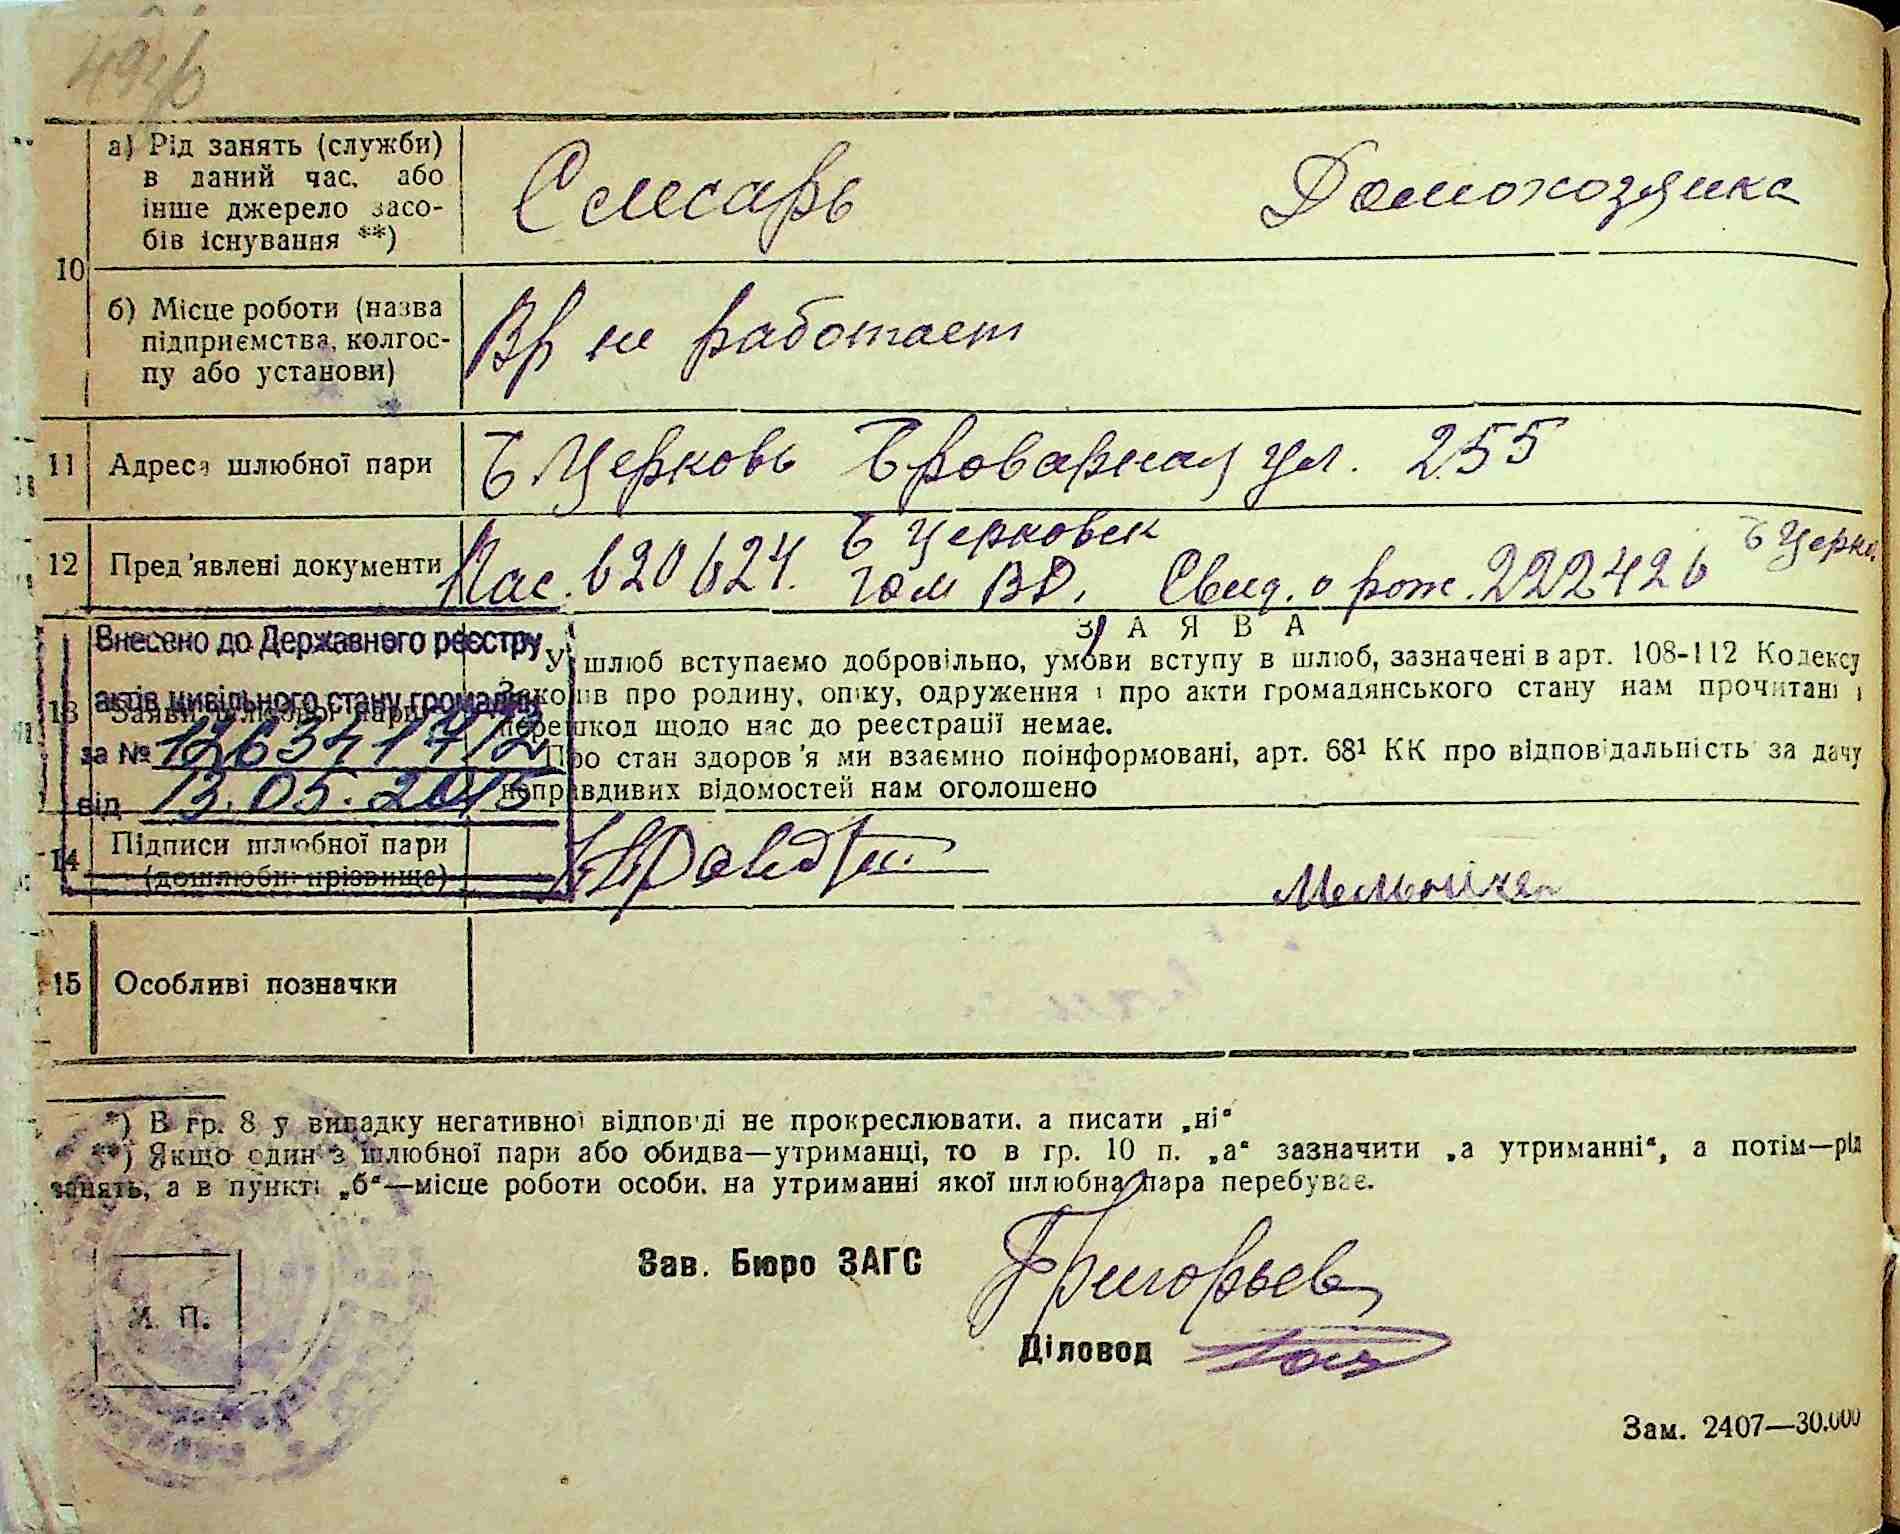 а) Рід занять (служби)
в даний час, або
інше джерело засо-
бів існування **)
Слесарь Домохозяика
10
б) Місце роботи (назва
підприємства, колгос-
пу або установи)
Вр не работает
11 Адреса шлюбної пари Б Церковь Броварная ул. 255
12 Пред'явлені документи Пас. 620624. Б Церковск
гом ВД. Свид. о рож. 222426 Б Церк.
ЗАЯВА
Внесено до Державного реєстру
актів цивільного стану громадян
за № 12634174/2
від 13.05.2015
13 Заяви шлюбної пари
У шлюб вступаємо добровільно, умови вступу в шлюб, зазначені в арт. 108-112 Кодексу
Законів про родину, опіку, одруження і про акти громадянського стану нам прочитані і
перешкод щодо нас до реєстрації немає.
Про стан здоров'я ми взаємно поінформовані, арт. 68¹ КК про відповідальність за дачу
неправдивих відомостей нам оголошено
14 Підписи шлюбної пари
(дошлюбні прізвища)
Мельник
15 Особливі позначки
*) В гр. 8 у випадку негативної відповіді не прокреслювати, а писати „ні“
**) Якщо один з шлюбної пари або обидва—утриманці, то в гр. 10 п. „а“ зазначити „а утриманні“, а потім—рід
занять, а в пункті „б“—місце роботи особи, на утриманні якої шлюбна пара перебуває.
Зав. Бюро ЗАГС Григорьев
М. П.
Діловод
Зам. 2407—30.000